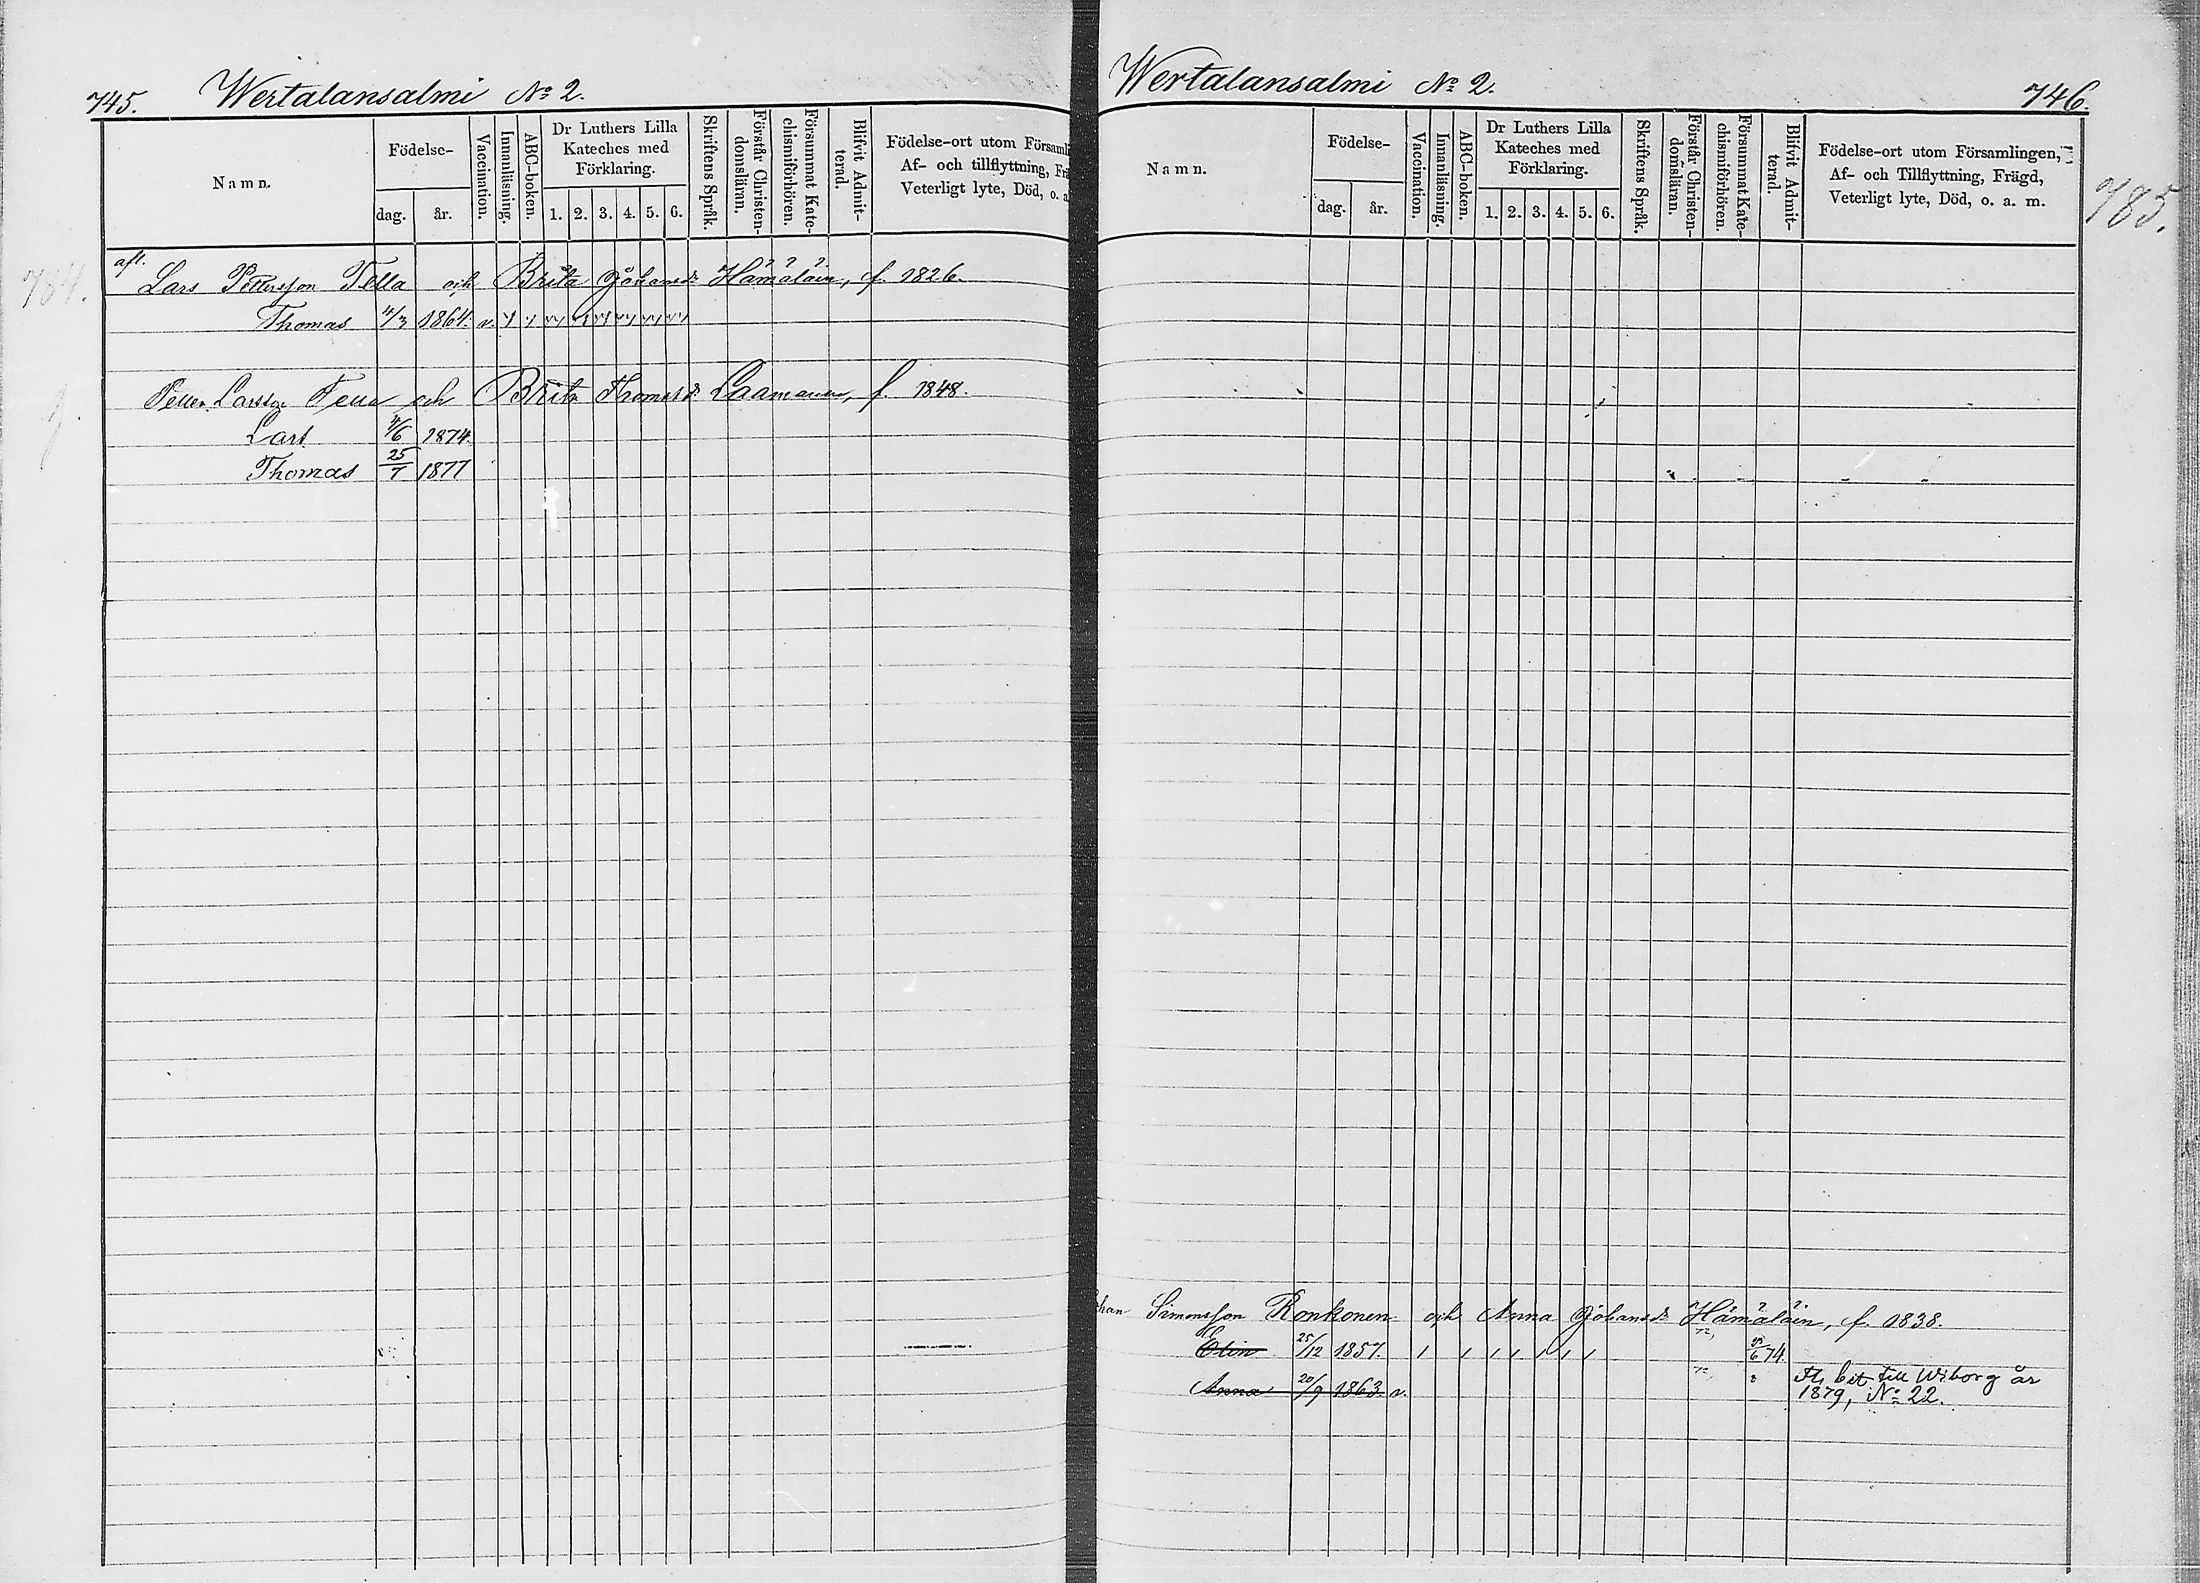 745. Wertalansalmi No 2.
Namn.
Födelse-
dag. år.
Vaccination.
Innanläsning.
ABC-boken.
Dr Luthers Lilla
Kateches med
Förklaring.
1. 2. 3. 4. 5. 6.
Skriftens Språk.
Förstår Christen-
domsläran.
Försummat Kate-
chismiförhören.
Blifvit Admit-
terad.
Födelse-ort utom Församli
Af- och tillflyttning, Frä
Veterligt lyte, Död, o. a
784.
afl.
Lars Pettersson Tella och Brita Johansdr Hämäläin, f. 1826.
Thomas 4/3 1864. v.
Petter Larsson Tella och Brita Thomasdr Laamanen, f. 1848.
Lars /6 1874.
Thomas 25/7 1877
Wertalansalmi No 2. 746.
785.
Namn.
Födelse-
dag. år.
Vaccination.
Innanläsning.
ABC-boken.
Dr Luthers Lilla
Kateches med
Förklaring.
1. 2. 3. 4. 5. 6.
Skriftens Språk.
Förstår Christen-
domsläran.
Försummat Kate-
chismiförhören.
Blifvit Admit-
terad.
Födelse-ort utom Församlingen,
Af- och Tillflyttning, Frägd,
Veterligt lyte, Död, o. a. m.
han Simonsson Ronkonen och Anna Johansdr Hämäläin, f. 1838.
Elin 25/12 1857. /6 74
Anna 20/9 1863. v. Fl. bet till Wiborg år
1879, No 22.